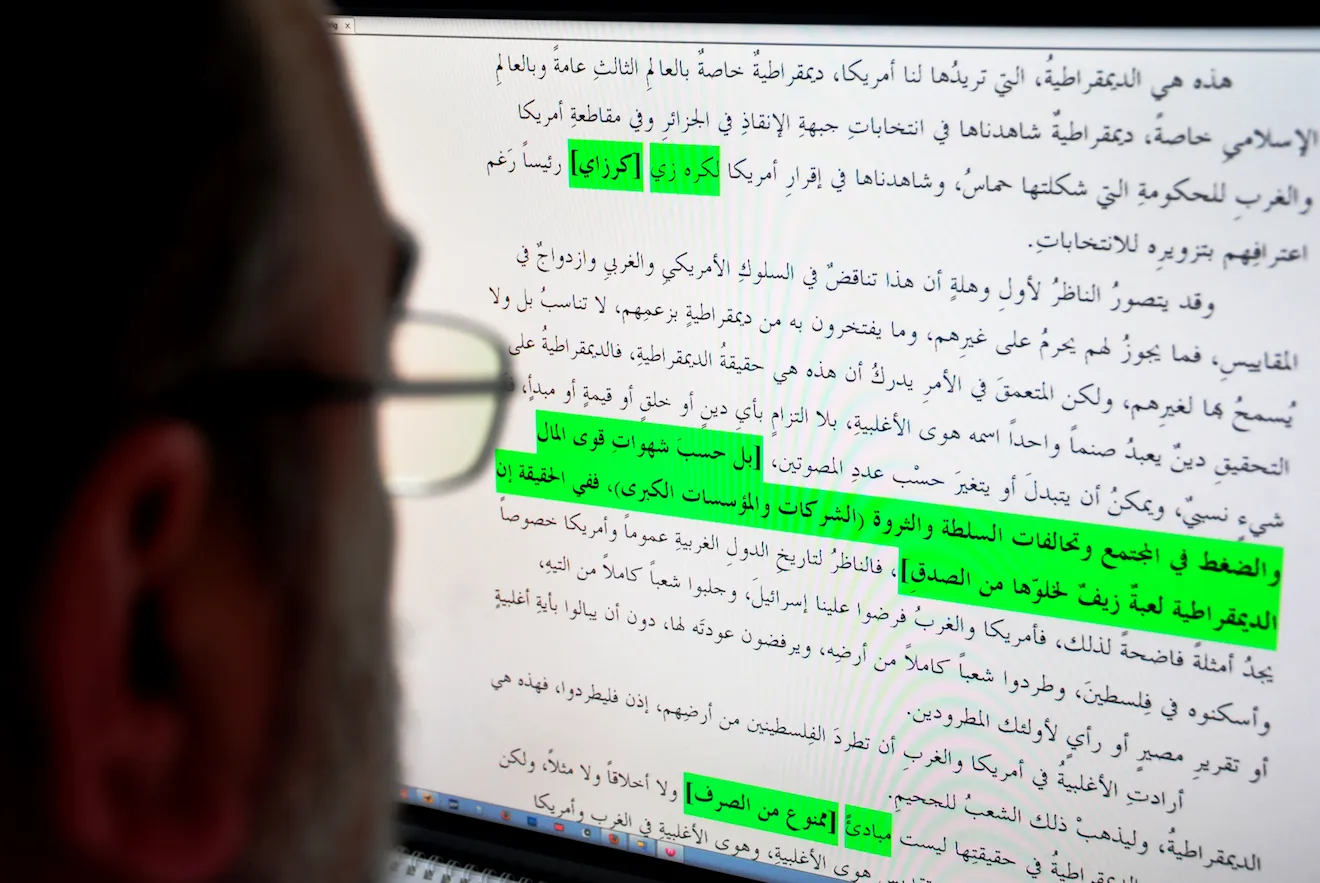 هذه هي الديمقراطيةُ، التي تريدُها لنا أمريكا، ديمقراطيةٌ خاصةٌ بالعالمِ الثالثِ عامةً وبالعالمِ
الإسلاميِ خاصةً، ديمقراطيةٌ شاهدناها في انتخاباتِ جبهةِ الإنقاذِ في الجزائرِ وفي مقاطعةِ أمريكا
والغربِ للحكومةِ التي شكلتها حماسُ، وشاهدناها في إقرارِ أمريكا لكره زي [كرزاي] رئيساً رَغم
اعترافِهم بتزويرِه للانتخاباتِ.
وقد يتصورُ الناظرُ لأولِ وهلةٍ أن هذا تناقضٌ في السلوكِ الأمريكيِ والغربيِ وازدواجٌ في
المقاييسِ، فما يجوزُ لهم يحرمُ على غيرِهم، وما يفتخرون به من ديمقراطيةٍ بزعمِهم، لا تناسبُ بل ولا
يُسمحُ بها لغيرِهم، ولكن المتعمقَ في الأمرِ يدركُ أن هذه هي حقيقةُ الديمقراطيةِ، فالديمقراطيةُ على
التحقيقِ دينٌ يعبدُ صنماً واحداً اسمه هوى الأغلبيةِ، بلا التزامٍ بأيِ دينٍ أو خلقٍ أو قيمةٍ أو مبدأٍ،
شيءٍ نسبيٌ، ويمكنُ أن يتبدلَ أو يتغيرَ حسْب عددِ المصوتين، [بل حسبَ شهواتِ قوى المال
والضغط في المجتمع وتحالفات السلطة والثروة (الشركات والمؤسسات الكبرى)، ففي الحقيقة إن
الديمقراطية لعبةٌ زيفٌ لخلوّها من الصدقِ]، فالناظرُ لتاريخِ الدولِ الغربيةِ عموماً وأمريكا خصوصاً
يجدُ أمثلةً فاضحةً لذلك، فأمريكا والغربُ فرضوا علينا إسرائيلَ، وجلبوا شعباً كاملاً من التيهِ،
وأسكنوه في فِلسطينَ، وطردوا شعباً كاملاً من أرضِه، ويرفضون عودتَه لها، دون أن يبالوا بأيةِ أغلبيةٍ
أو تقريرِ مصيرٍ أو رأيٍ لأولئك المطرودين.
أرادتِ الأغلبيةُ في أمريكا والغربِ أن تطردَ الفِلسطينين من أرضِهم، إذن فليطردوا، فهذه هي
الديمقراطيةُ، وليذهبْ ذلك الشعبُ للجحيمِ.
الديمقراطيةُ في حقيقتِها ليست مبادئً [ممنوع من الصرف] ولا أخلاقاً ولا مثلاً، ولكن
هوى الأغلبيةِ، وهوى الأغلبيةِ في الغربِ وأمريكا